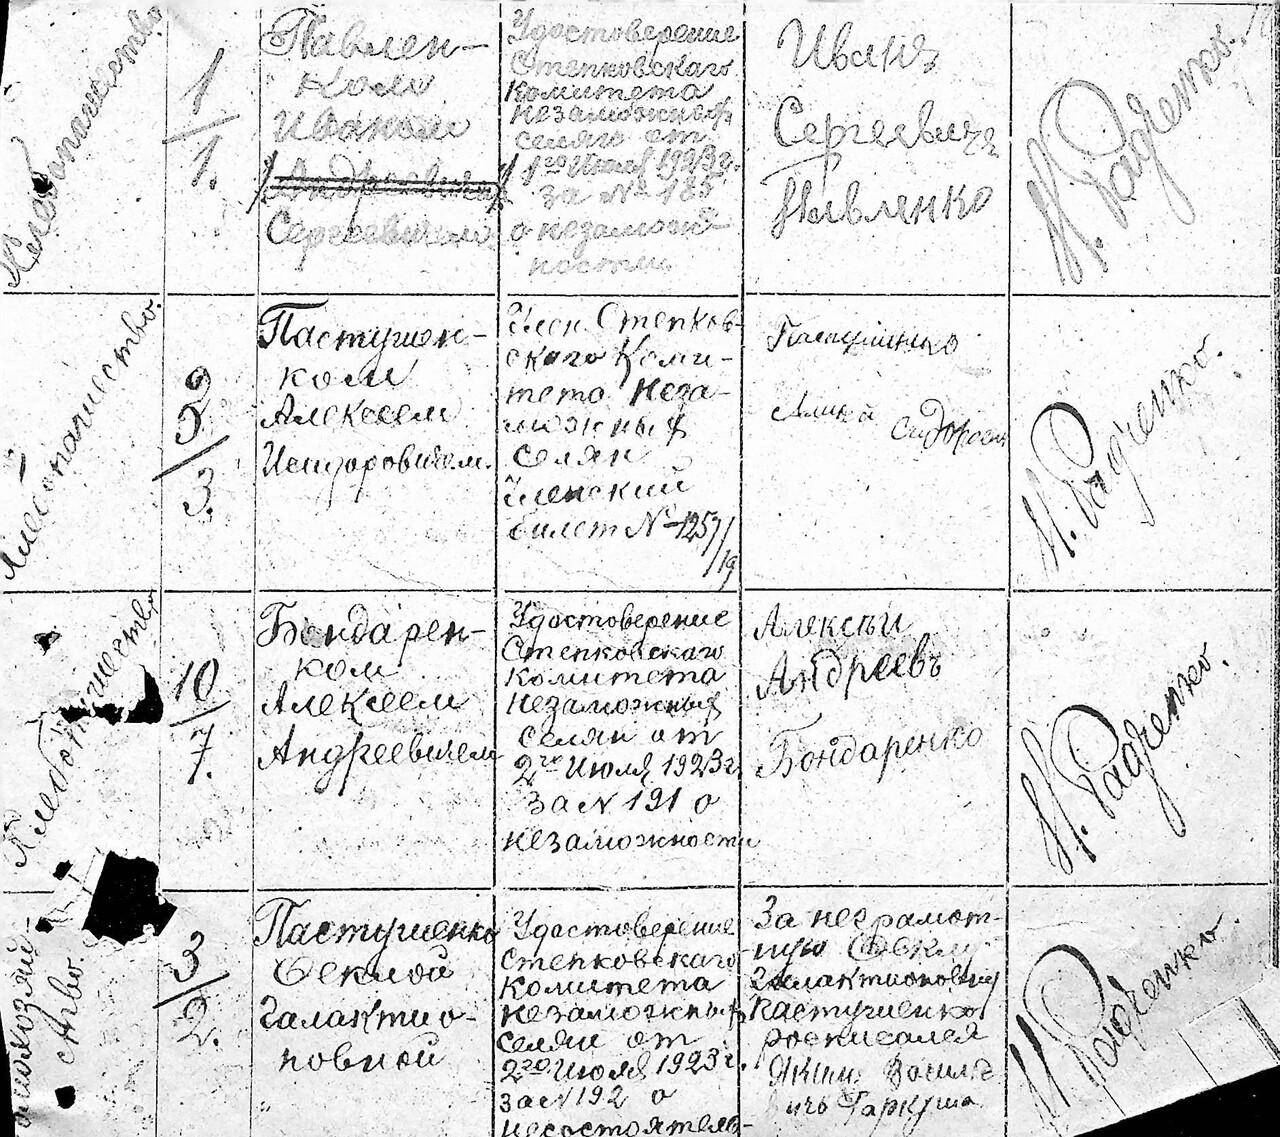 Хлебопашество
1
1.
Павлен-
ком
Иваном
Андреевичем
Сергеевичем
Удостоверение
Степковскаго
Комитета
незаможных
селян от
1го Июля 1923 г.
за № 185
о незамож-
ности.
Иванъ
Сергеевичъ
Павленко
И. Радченко.
Хлебопашество.
5
3.
Пастушен-
ком
Алексеем
Исидоровичем.
Член Степков-
скаго Коми-
тета Неза-
можных
селян
членский
билет № 1257/19
Пастушенко
И. Радченко.
Хлебопашество
10
7.
Бондарен-
ком
Алексеем
Андреевичем
Удостоверение
Степковскаго
комитета
незаможных
селян от
2го Июля 1923 г.
за № 191 о
незаможности
Алексъи
Андреевъ
Бондаренко
И. Радченко.
ство
3
2.
Пастушенко
Феклой
Галактио-
новной
Удостоверение
Степковскаго
комитета
незаможных
селян от
2го Июля 1923 г.
за № 192 о
несостоятель-
За неграмот-
ную Феклу
Галактионовну
Пастушенко
росписался
Якимъ
Гаркуша
И. Радченко